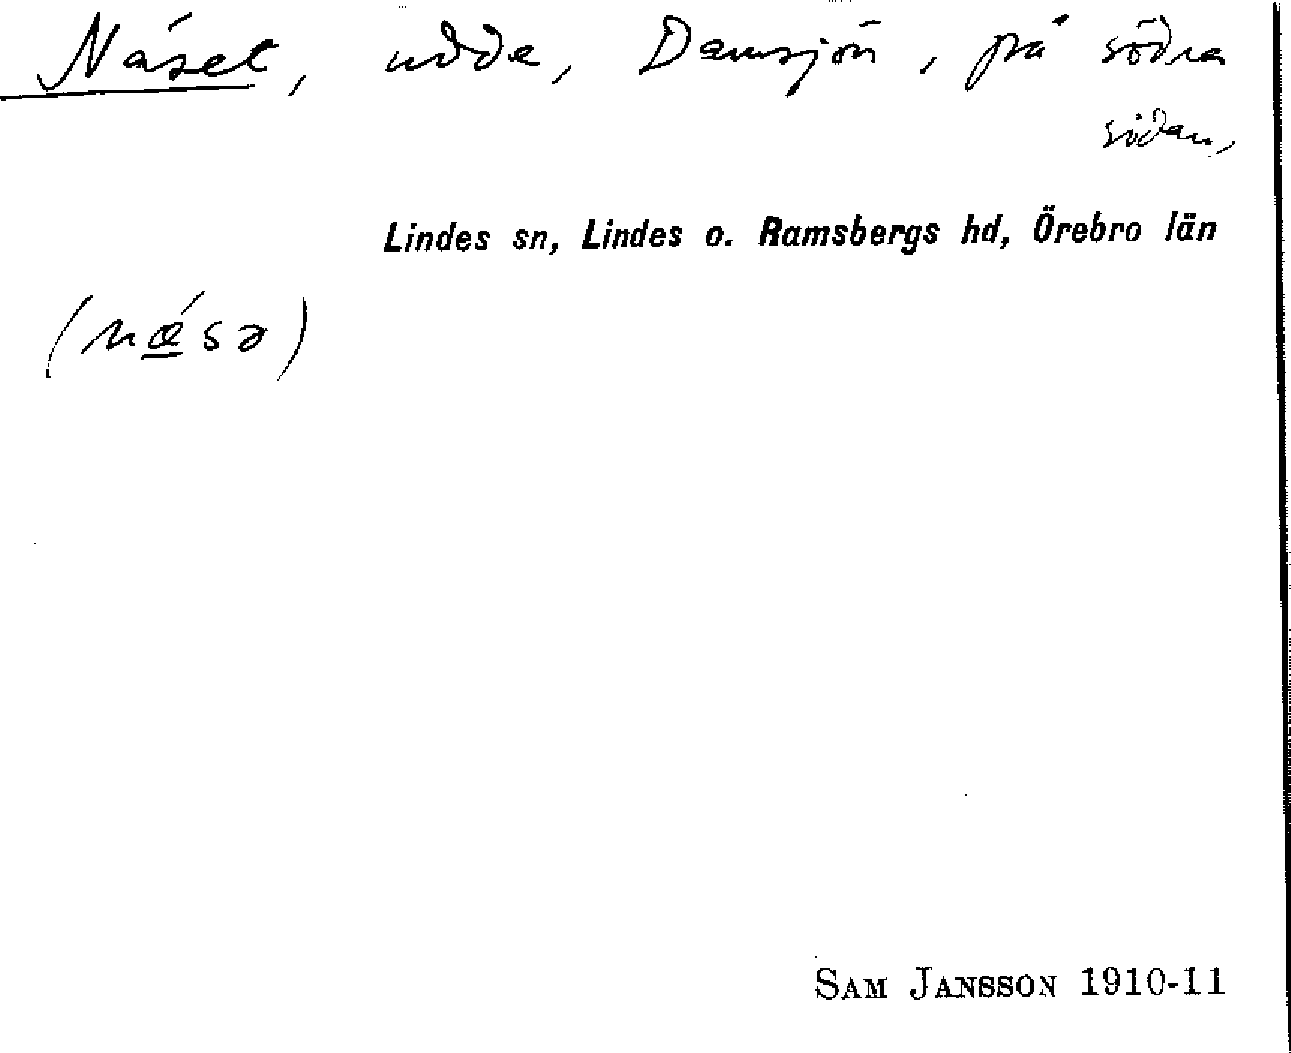 Näset, udde, Damsjön, på södra
sidan,
Lindes sn, Lindes o. Ramsbergs hd, Örebro län
(nǽsə)
SAM JANSSON 1910-11